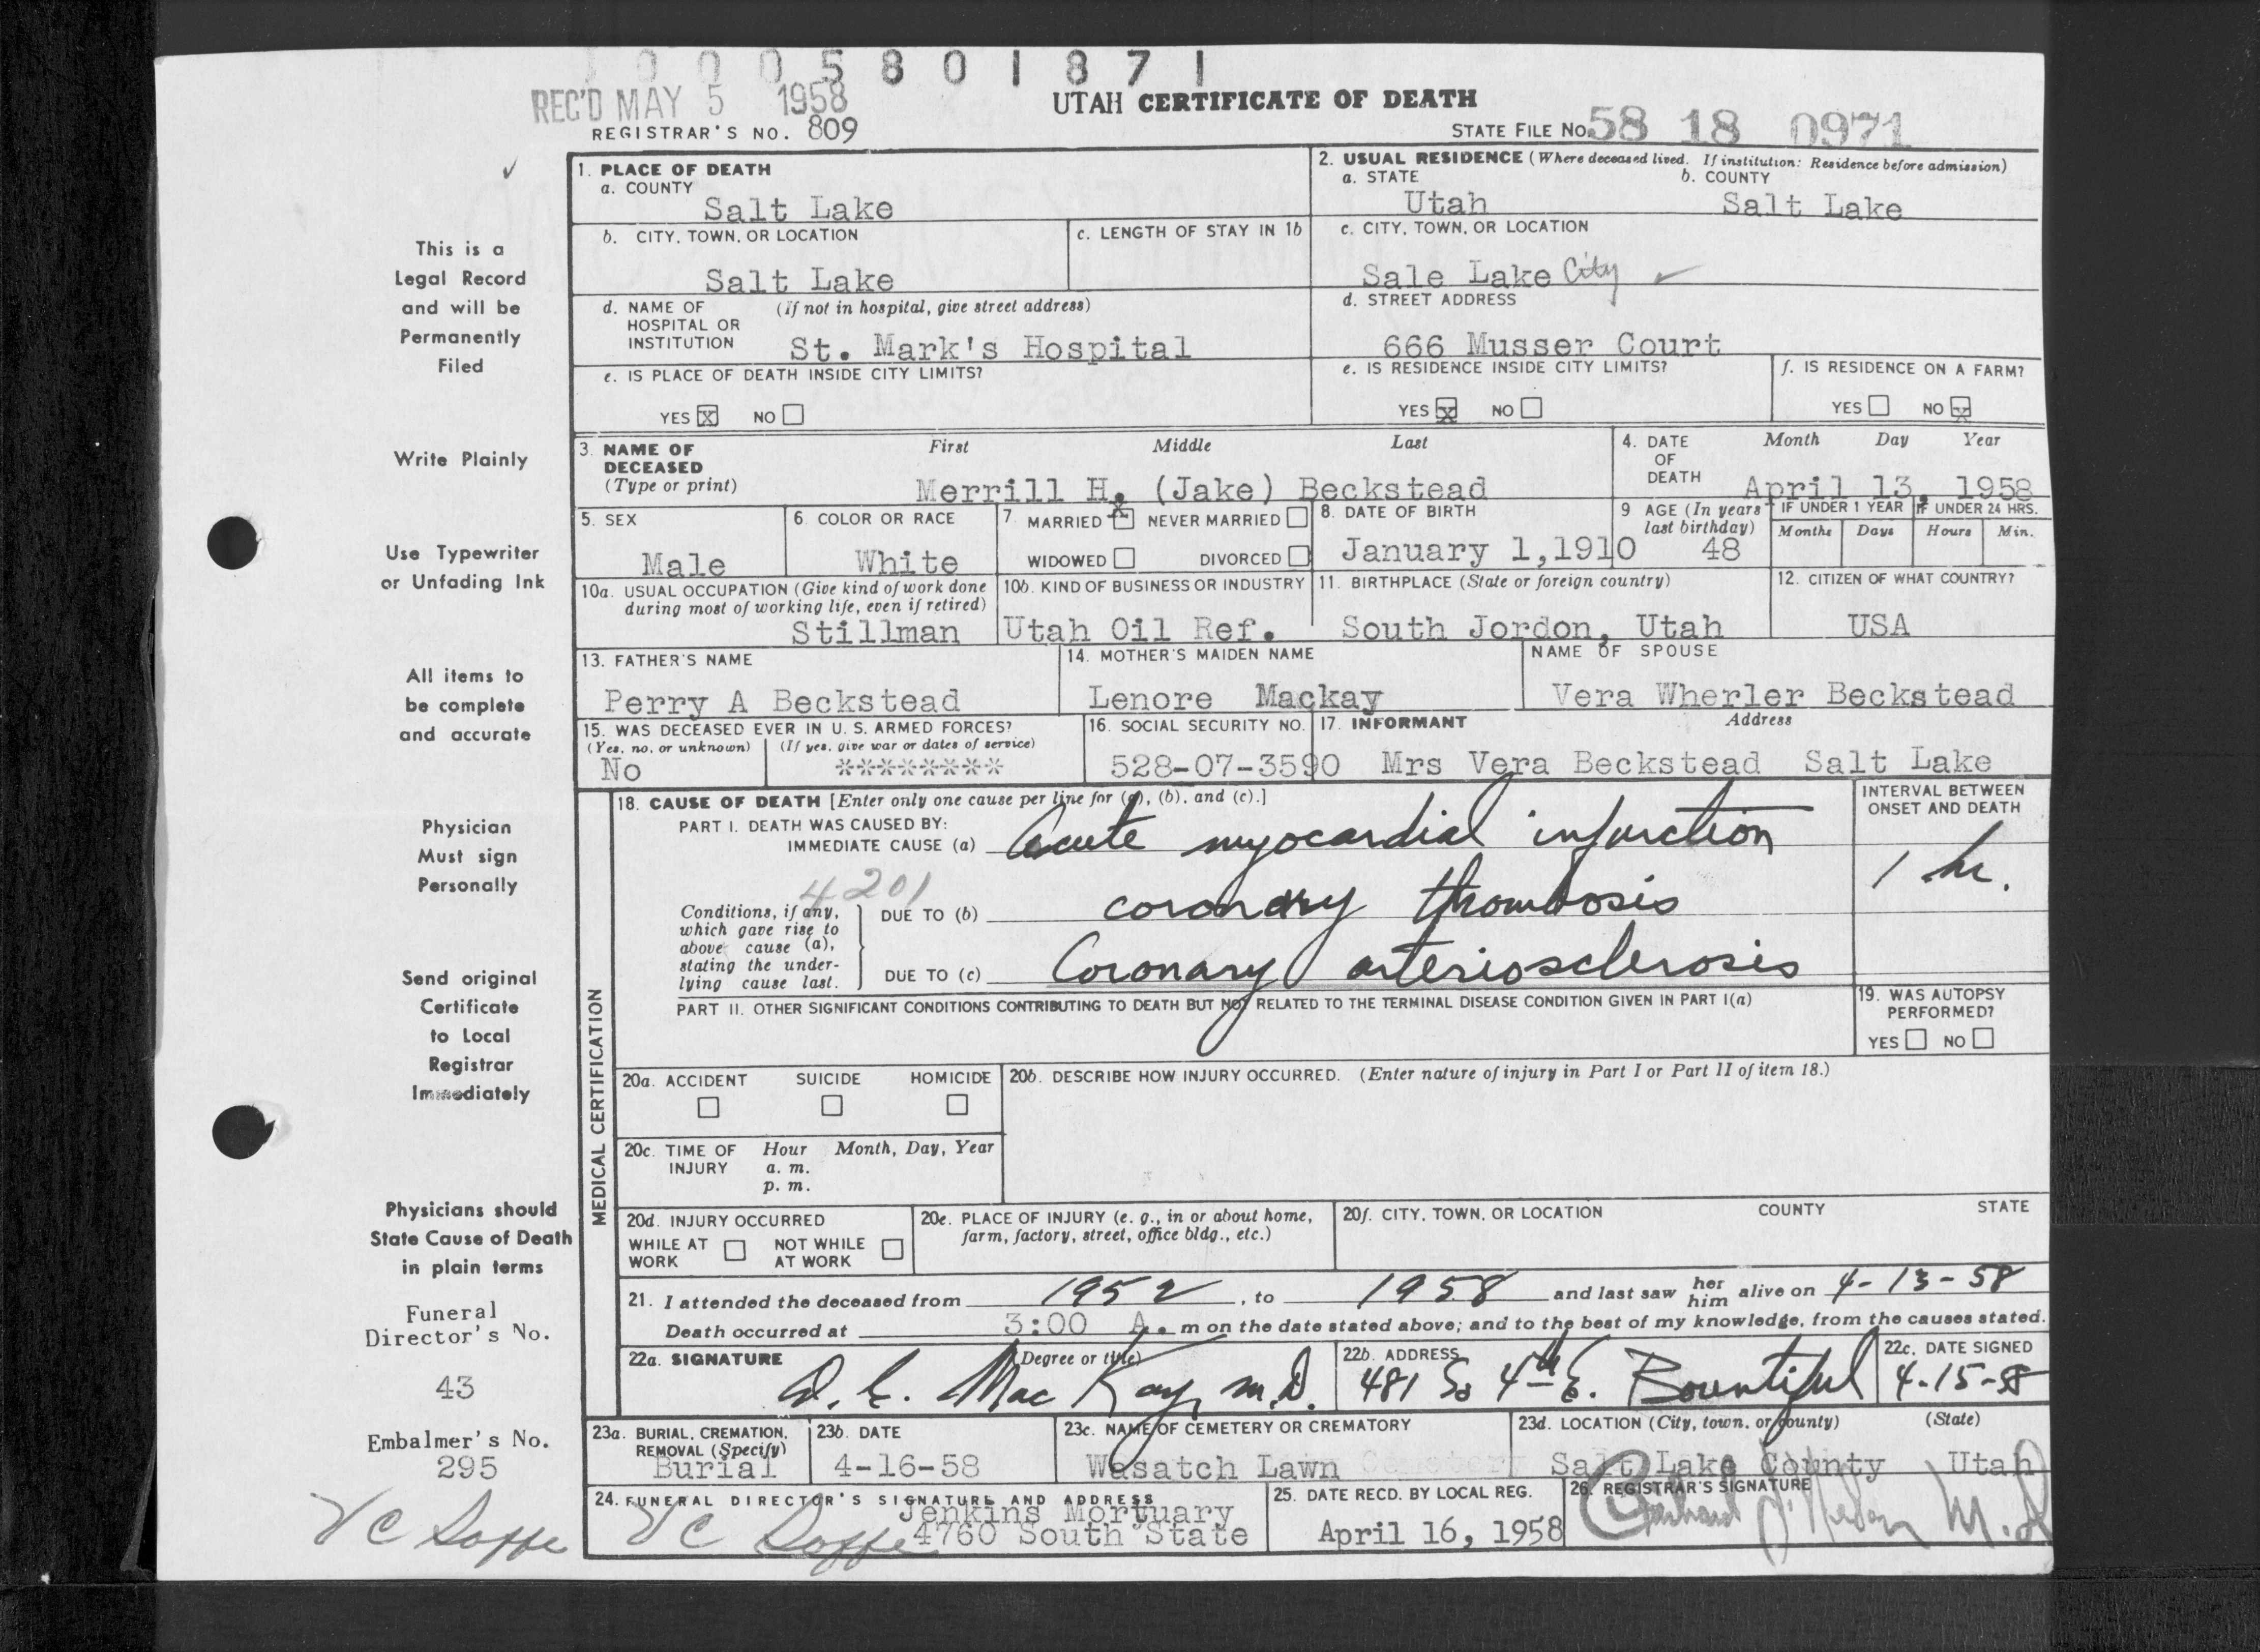 0 0 0 5 8 0 1 8 7 1
REC'D MAY 5 1958
UTAH CERTIFICATE OF DEATH
REGISTRAR'S NO. 809
STATE FILE NO. 58 18 0971
This is a
Legal Record
and will be
Permanently
Filed
Write Plainly
Use Typewriter
or Unfading Ink
All items to
be complete
and accurate
Physician
Must sign
Personally
Send original
Certificate
to Local
Registrar
Immediately
Physicians should
State Cause of Death
in plain terms
Funeral
Director's No.
43
Embalmer's No.
295
V C Soffe
1. PLACE OF DEATH
a. COUNTY
Salt Lake
b. CITY, TOWN, OR LOCATION
Salt Lake
c. LENGTH OF STAY IN 1b
d. NAME OF (If not in hospital, give street address)
HOSPITAL OR
INSTITUTION St. Mark's Hospital
e. IS PLACE OF DEATH INSIDE CITY LIMITS?
YES X NO
2. USUAL RESIDENCE (Where deceased lived. If institution: Residence before admission)
a. STATE b. COUNTY
Utah Salt Lake
c. CITY, TOWN, OR LOCATION
Sale Lake City
d. STREET ADDRESS
666 Musser Court
e. IS RESIDENCE INSIDE CITY LIMITS?
YES X NO
f. IS RESIDENCE ON A FARM?
YES NO X
3. NAME OF First Middle Last
DECEASED
(Type or print) Merrill H. (Jake) Beckstead
4. DATE Month Day Year
OF
DEATH April 13, 1958
5. SEX
Male
6. COLOR OR RACE
White
7. MARRIED X NEVER MARRIED
WIDOWED DIVORCED
8. DATE OF BIRTH
January 1,1910
9 AGE (In years
last birthday)
48
IF UNDER 1 YEAR IF UNDER 24 HRS.
Months Days Hours Min.
10a. USUAL OCCUPATION (Give kind of work done
during most of working life, even if retired)
Stillman
10b. KIND OF BUSINESS OR INDUSTRY
Utah Oil Ref.
11. BIRTHPLACE (State or foreign country)
South Jordon, Utah
12. CITIZEN OF WHAT COUNTRY?
USA
13. FATHER'S NAME
Perry A Beckstead
14. MOTHER'S MAIDEN NAME
Lenore Mackay
NAME OF SPOUSE
Vera Wherler Beckstead
15. WAS DECEASED EVER IN U. S. ARMED FORCES?
(Yes, no, or unknown) (If yes, give war or dates of service)
No ********
16. SOCIAL SECURITY NO.
528-07-3590
17. INFORMANT Address
Mrs Vera Beckstead Salt Lake
MEDICAL CERTIFICATION
18. CAUSE OF DEATH [Enter only one cause per line for (a), (b), and (c).]
PART I. DEATH WAS CAUSED BY:
IMMEDIATE CAUSE (a) Acute myocardial infarction
4201
Conditions, if any,
which gave rise to
above cause (a),
stating the under-
lying cause last.
DUE TO (b) coronary thrombosis
DUE TO (c) Coronary arteriosclerosis
INTERVAL BETWEEN
ONSET AND DEATH
1 hr.
PART II. OTHER SIGNIFICANT CONDITIONS CONTRIBUTING TO DEATH BUT NOT RELATED TO THE TERMINAL DISEASE CONDITION GIVEN IN PART I(a)
19. WAS AUTOPSY
PERFORMED?
YES NO
20a. ACCIDENT SUICIDE HOMICIDE
20b. DESCRIBE HOW INJURY OCCURRED. (Enter nature of injury in Part I or Part II of item 18.)
20c. TIME OF Hour Month, Day, Year
INJURY a. m.
p. m.
20d. INJURY OCCURRED
WHILE AT NOT WHILE
WORK AT WORK
20e. PLACE OF INJURY (e. g., in or about home,
farm, factory, street, office bldg., etc.)
20f. CITY, TOWN, OR LOCATION COUNTY STATE
21. I attended the deceased from 1952, to 1958 and last saw her him alive on 4-13-58
Death occurred at 3:00 A. m on the date stated above; and to the best of my knowledge, from the causes stated.
22a. SIGNATURE (Degree or title)
D. E. Mac Kay, M.D.
22b. ADDRESS
481 So 4th E. Bountiful
22c. DATE SIGNED
4-15-58
23a. BURIAL, CREMATION,
REMOVAL (Specify)
Burial
23b. DATE
4-16-58
23c. NAME OF CEMETERY OR CREMATORY
Wasatch Lawn
23d. LOCATION (City, town, or county) (State)
Salt Lake County Utah
24. FUNERAL DIRECTOR'S SIGNATURE AND ADDRESS
Jenkins Mortuary
V C Soffe 4760 South State
25. DATE RECD. BY LOCAL REG.
April 16, 1958
26. REGISTRAR'S SIGNATURE
M.D.